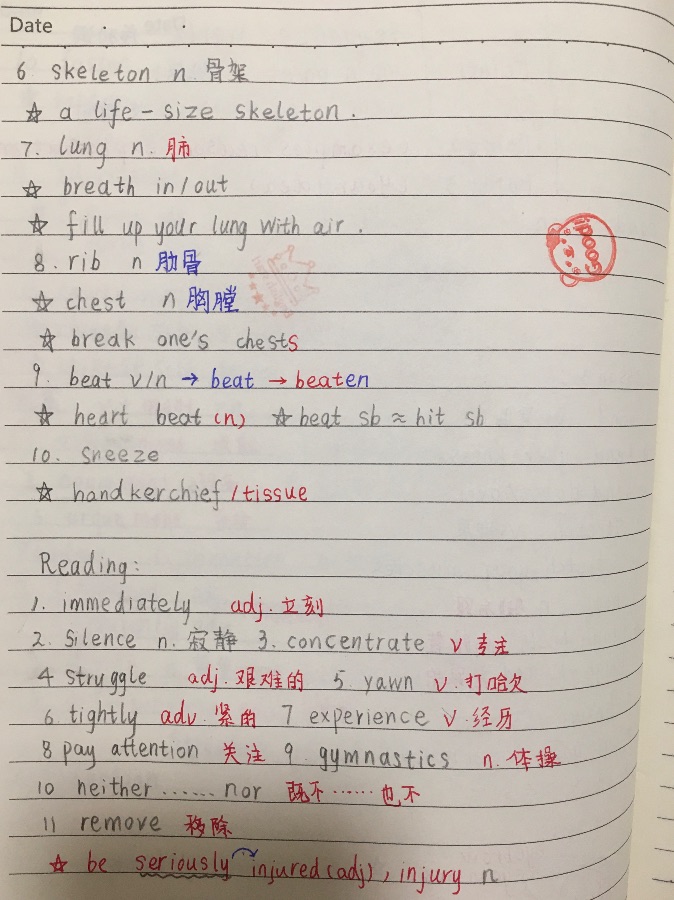 Date
6. skeleton n 骨架
☆ a life-size skeleton.
7. lung n. 肺
☆ breath in/out
☆ fill up your lung with air.
8. rib n 肋骨
☆ chest n 胸膛
☆ break one's chests
9. beat v/n → beat → beaten
☆ heart beat (n) ☆ beat sb ≈ hit sb
10. sneeze
☆ handkerchief/tissue
Reading:
1. immediately adj. 立刻
2. silence n. 寂静 3. concentrate v 专注
4 struggle adj. 艰难的 5. yawn v. 打哈欠
6. tightly adv. 紧的 7 experience v. 经历
8 pay attention 关注 9. gymnastics n. 体操
10 neither ...... nor 既不 ...... 也不
11 remove 移除
☆ be seriously injured (adj), injury n
good!